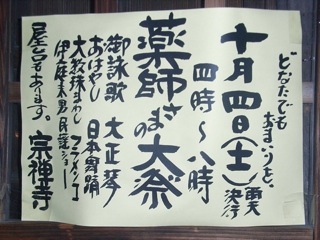 どなたでも
おまいりを。
十月四日(土)雨天決行
四時～八時
薬師さまの大祭
御詠歌 大正琴
おはやし 日本舞踊
大数珠まわし フラメンコ
伊庭孝男民謡ショー
屋台もあります。 宗禅寺